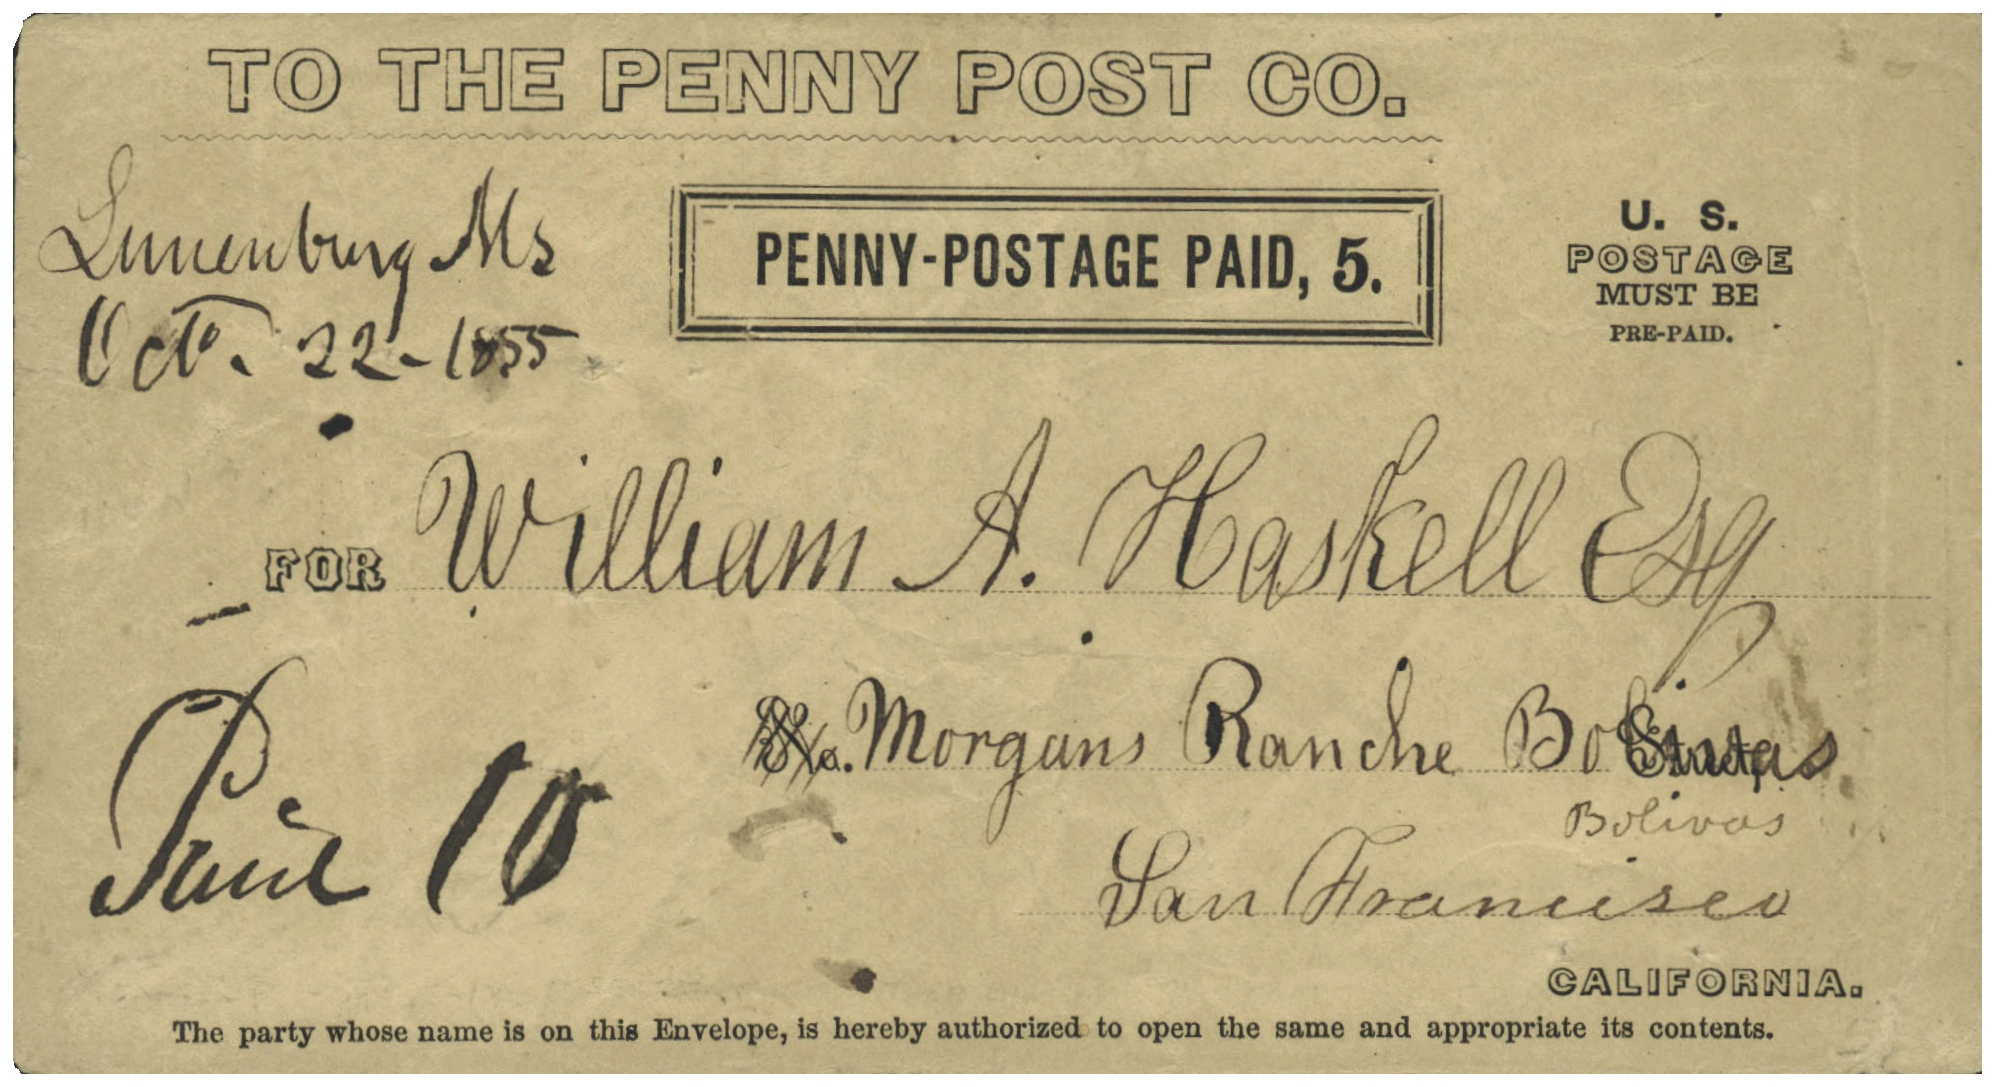 TO THE PENNY POST CO.
Lunenburg Ms
Oct. 22-1855
PENNY-POSTAGE PAID, 5.
U. S.
POSTAGE
MUST BE
PRE-PAID.
FOR William A. Haskell Esq
Morgans Ranche
Bolinas
Paid 10
San Francisco
CALIFORNIA.
The party whose name is on this Envelope, is hereby authorized to open the same and appropriate its contents.